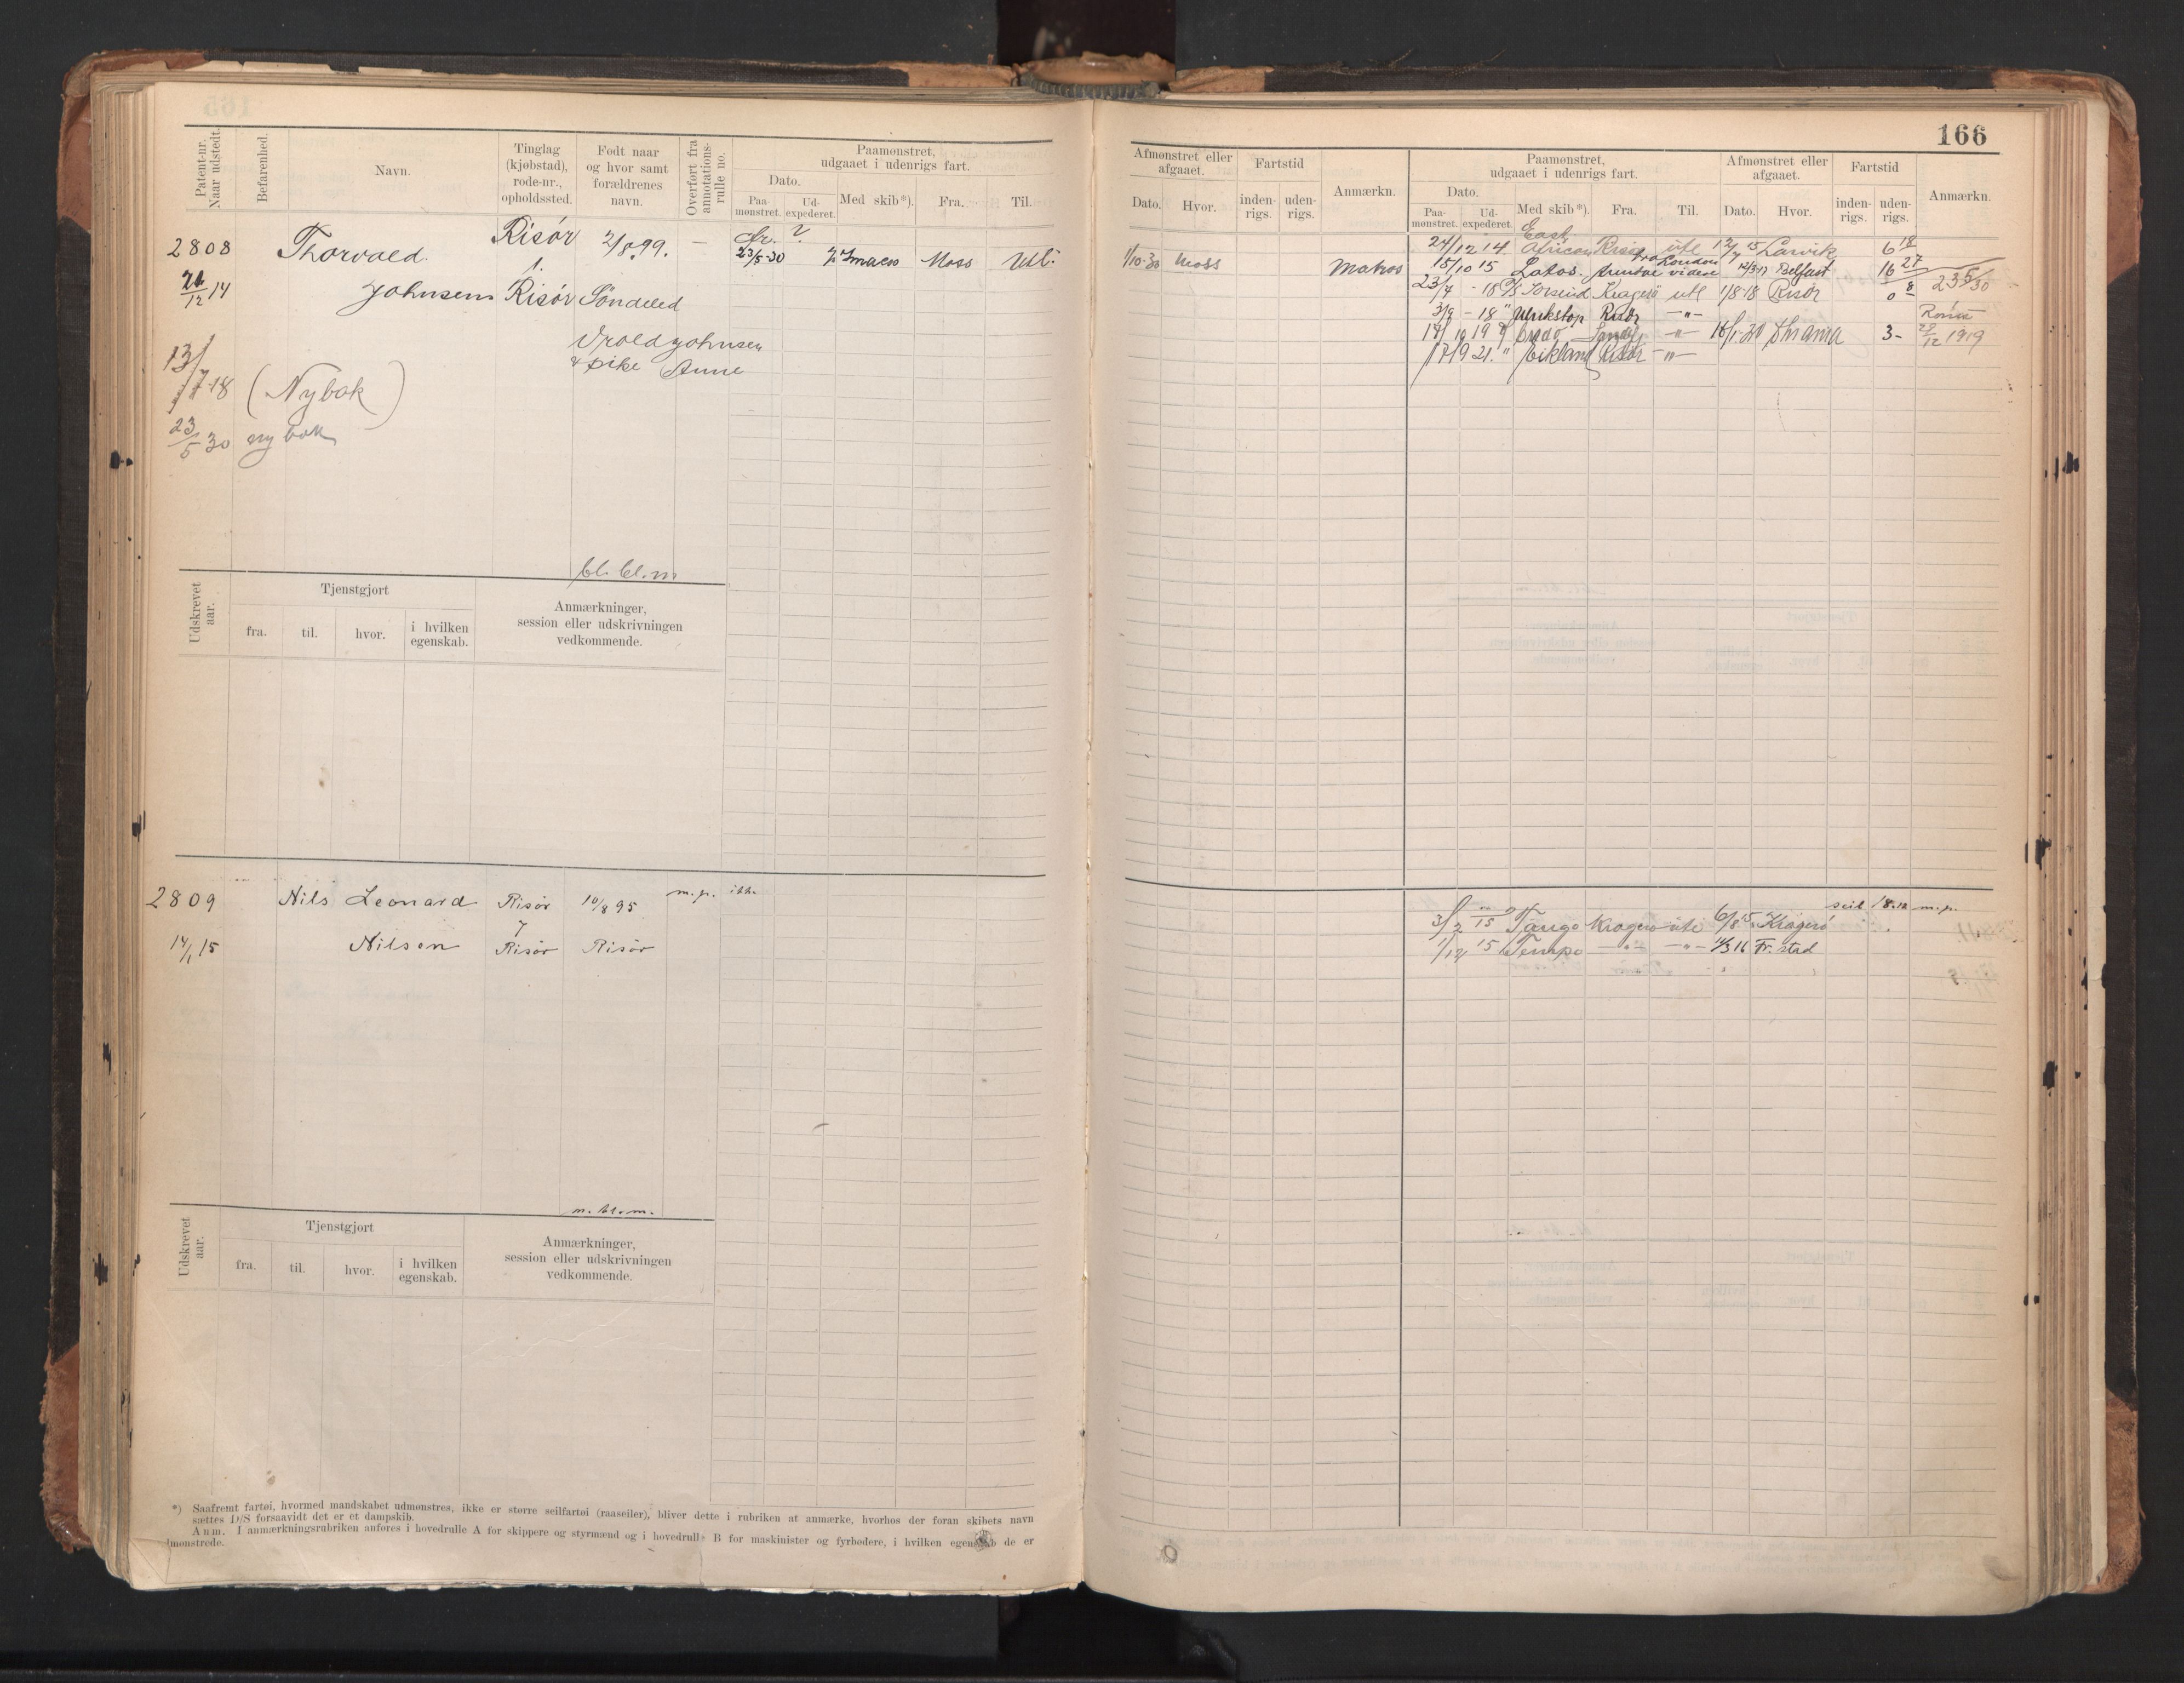 166
Patent-nr. Naar udstedt.
Befarenhed.
Navn.
Tinglag (kjøbstad), rode-nr., opholdssted.
Født naar og hvor samt forældrenes navn.
Overført fra annotationsrulle no.
Paamønstret, udgaaet i udenrigs fart.
Dato.
Paamønstret.
Udexpederet.
Med skib*).
Fra.
Til.
Afmønstret eller afgaaet.
Dato.
Hvor.
Fartstid
indenrigs.
udenrigs.
Anmærkn.
Paamønstret, udgaaet i udenrigs fart.
Dato.
Paamønstret.
Udexpederet.
Med skib*).
Fra.
Til.
Afmønstret eller afgaaet.
Dato.
Hvor.
Fartstid
indenrigs.
udenrigs.
Anmærkn.
2808 Thorvald Risör 2/8 99. —
1.
26/12 14 Johnsen Risör Söndeled
Johnsen
& pike Anne
13/7-18 (Ny bok)
23/5 30 ny bok
23/5-30 Moss Utl.
1/10-30 Moss Matros
24/12 14. East African Risör utl 12/7 15 Larvik 6 18
15/10 15 London videre 12/3-17 Belfast 16 27 23 5/30
23/7 - 18 Kragerö utl 1/8-18 Risör 0 8
3/9 - 18 " Risör -"-
19 -"- 16/1-20 3- 29/12 1919
17/9 21. " Eikland Risör -"-
bl. bl. m
Udskrevet aar.
Tjenstgjort
fra.
til.
hvor.
i hvilken egenskab.
Anmærkninger, session eller udskrivningen vedkommende.
2809 Nils Leonard Risör 10/8 95 m. p. ikk.
7
14/1 15 Nilsen Risör Risör
seil 18. m. p.
3/2 15 Tango Kragerö ute 6/8 15 Kragerö
1/12 15 Tempo -"- -"- 4/3 16 Fr.stad
m. bl. m.
Udskrevet aar.
Tjenstgjort
fra.
til.
hvor.
i hvilken egenskab.
Anmærkninger, session eller udskrivningen vedkommende.
*) Saafremt fartøi, hvormed mandskabet udmønstres, ikke er større seilfartøi (raaseiler), bliver dette i rubriken at anmerke, hvorhos der foran skibets navn
sættes D/S forsaavidt det er et dampskib.
Anm. I anmærkningsrubriken anføres i hovedrulle A for skippere og styrmænd og i hovedrulle B for maskinister og fyrbødere, i hvilken egenskab de er
mønstrede.